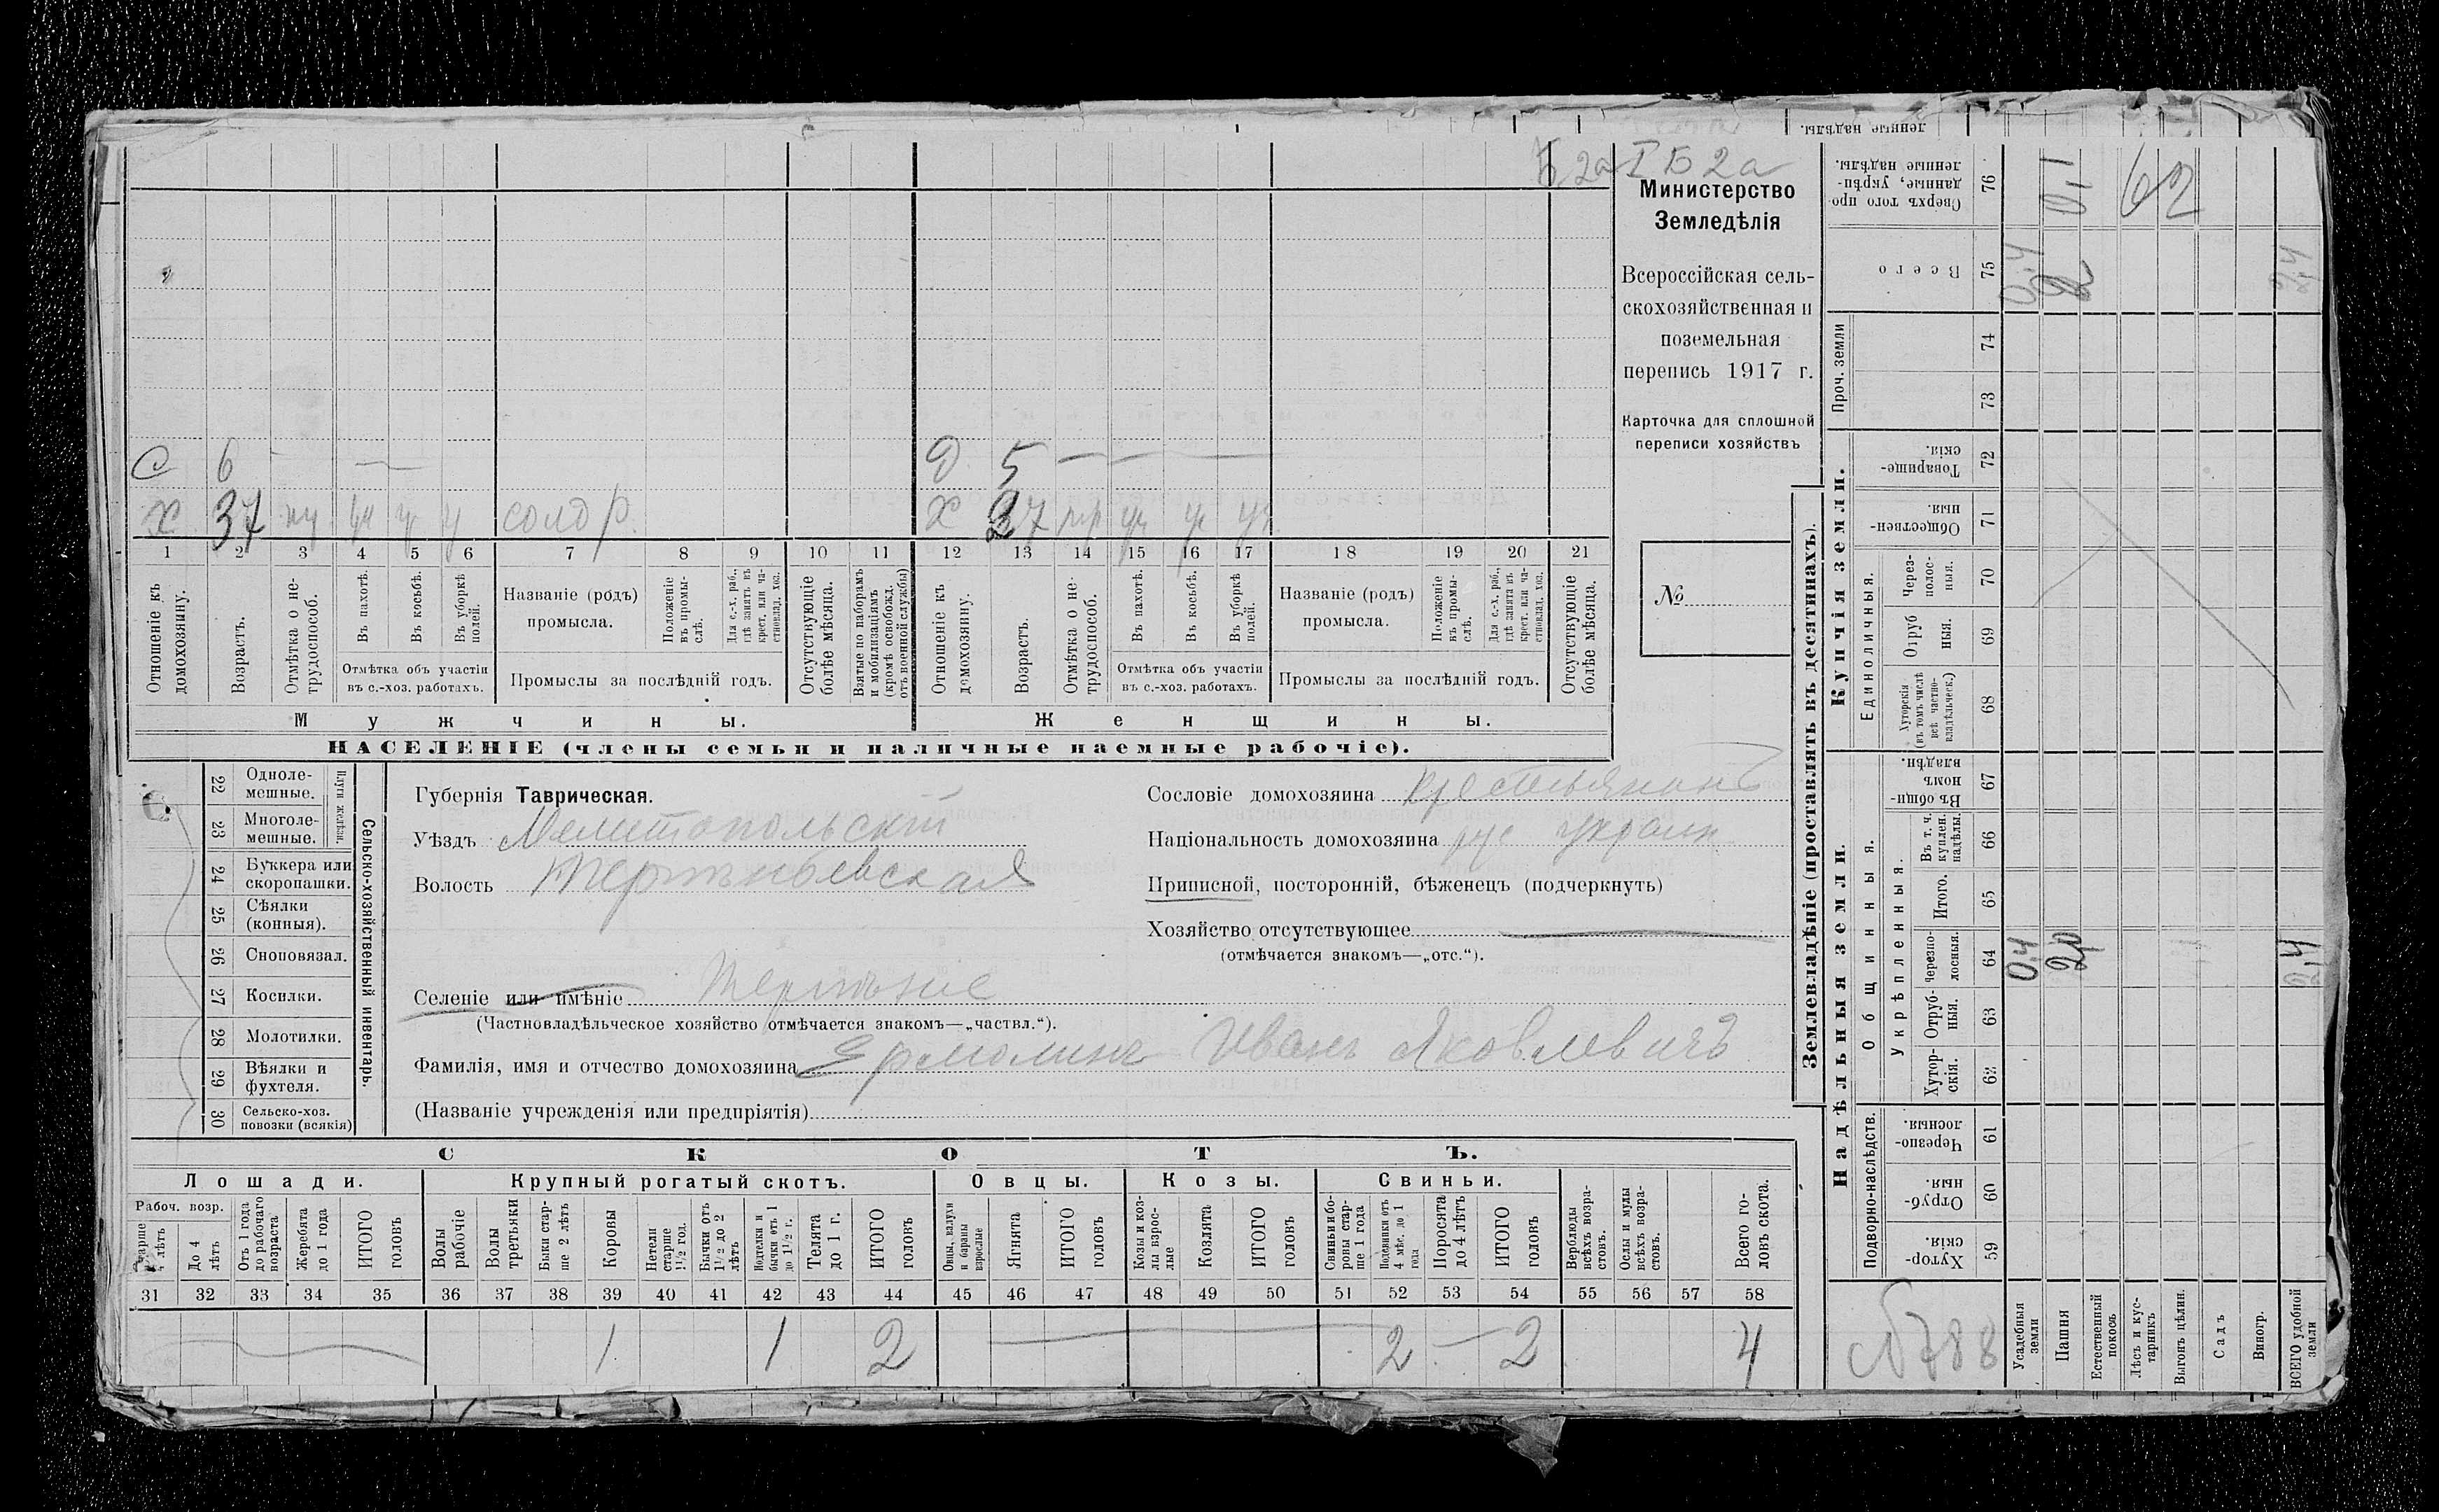 Б 2а I Б 2а
Министерство
Земледѣлія
Всероссійская сель-
скохозяйственная и
поземельная
перепись 1917 г.
Карточка для сплошной
переписи хозяйствъ
№
С 6 — Д 5 —
Х 37 солд Х 37
1 2 3 4 5 6 7 8 9 10 11 12 13 14 15 16 17 18 19 20 21
Отношеніе къ домохозяину.
Возрастъ.
Отмѣтка о не-трудоспособ.
Въ пахотѣ.
Въ косьбѣ.
Въ уборкѣ полей.
Отмѣтка объ участіи
въ с.-хоз. работахъ.
Названіе (родъ)
промысла.
Положеніе въ промы-слѣ.
Для с.-х. раб., гдѣ занятъ въ крест. или ча-стновлад. хоз.
Промыслы за послѣдній годъ.
Отсутствующіе болѣе мѣсяца.
Взятые по наборамъ и мобилизаціямъ (кромѣ освобожд. отъ военной службы)
Отношеніе къ домохозяину.
Возрастъ.
Отмѣтка о не-трудоспособ.
Въ пахотѣ.
Въ косьбѣ.
Въ уборкѣ полей.
Отмѣтка объ участіи
въ с.-хоз. работахъ.
Названіе (родъ)
промысла.
Положеніе въ промы-слѣ.
Для с.-х. раб., гдѣ занята въ крест. или ча-стновлад. хоз.
Промыслы за послѣдній годъ.
Отсутствующіе болѣе мѣсяца.
Мужчины. Женщины.
НАСЕЛЕНІЕ (члены семьи и наличные наемные рабочіе).
Сельско-хозяйственный инвентарь.
Плуги желѣзн.
22 Одноле-мешные.
23 Многоле-мешные.
24 Буккера или скоропашки.
25 Сѣялки (конныя).
26 Сноповязал.
27 Косилки.
28 Молотилки.
29 Вѣялки и фухтеля.
30 Сельско-хоз. повозки (всякія)
Губернія Таврическая.
Уѣздъ Мелитопольскій
Волость Терпѣньевская
Селеніе или имѣніе Терпѣніе
(Частновладѣльческое хозяйство отмѣчается знакомъ—„частвл.“).
Фамилія, имя и отчество домохозяина Ермолинъ Иванъ Яковлевичъ
(Названіе учрежденія или предпріятія)
Сословіе домохозяина крестьянинъ
Національность домохозяина рус украин
Приписной, посторонній, бѣженецъ (подчеркнуть)
Хозяйство отсутствующее —
(отмѣчается знакомъ—„отс.“).
СКОТЪ.
Лошади. Крупный рогатый скотъ. Овцы. Козы. Свиньи.
Рабоч. возр.
Старше 4 лѣтъ
До 4 лѣтъ
Отъ 1 года до рабочаго возраста
Жеребята до 1 года
ИТОГО головъ
Волы рабочіе
Волы третьяки
Быки стар-ше 2 лѣтъ
Коровы
Нетели старше 1½ год.
Бычки отъ 1½ до 2 лѣтъ
бычки отъ 1 до 1½ г.
Телята до 1 г.
ИТОГО головъ
Овцы, валухи и бараны взрослые
Ягнята
ИТОГО головъ
Козы и коз-лы взрос-лые
Козлята
ИТОГО головъ
Свиньи и бо-ровы стар-ше 1 года
Подсвинки отъ 4 мѣс. до 1 года
Поросята до 4 лѣтъ
ИТОГО головъ
Верблюды всѣхъ возра-стовъ.
Ослы и мулы всѣхъ возра-стовъ.
Всего го-ловъ скота.
31 32 33 34 35 36 37 38 39 40 41 42 43 44 45 46 47 48 49 50 51 52 53 54 55 56 57 58
1 1 2 — 2 — 2 4
Землевладѣніе (проставлять въ десятинахъ).
ленные надѣлы.
Сверхъ того про-данные, укрѣп-ленные надѣлы. 76 0,1 62
Всего 75 0,4 2 2,4
Проч. земли 74
73
Купчія земли.
Товарище-скія. 72
Обществен-ныя. 71
Единоличныя.
Через-полос-ныя. 70
Отруб ныя. 69
Хуторскія (въ томъ числѣ всѣ частно-владѣльческ.) 68
Надѣльныя земли.
Общинныя.
Въ общи-номъ владѣн. 67
Укрѣпленныя.
Въ т. ч. куплен. надѣлы. 66
Итого. 65
Черезпо-лосныя. 64 0,4 2,0 2,4
Отруб-ныя. 63
Хутор-скія. 62
Подворно-наслѣдств.
Черезпо-лосныя. 61
Отруб-ныя. 60
Хутор-скія. 59
№788
Усадебныя земли
Пашня
Естественный покосъ
Лѣсъ и кус-тарникъ
Выгонъ цѣлин.
Садъ
Виногр.
ВСЕГО удобной земли